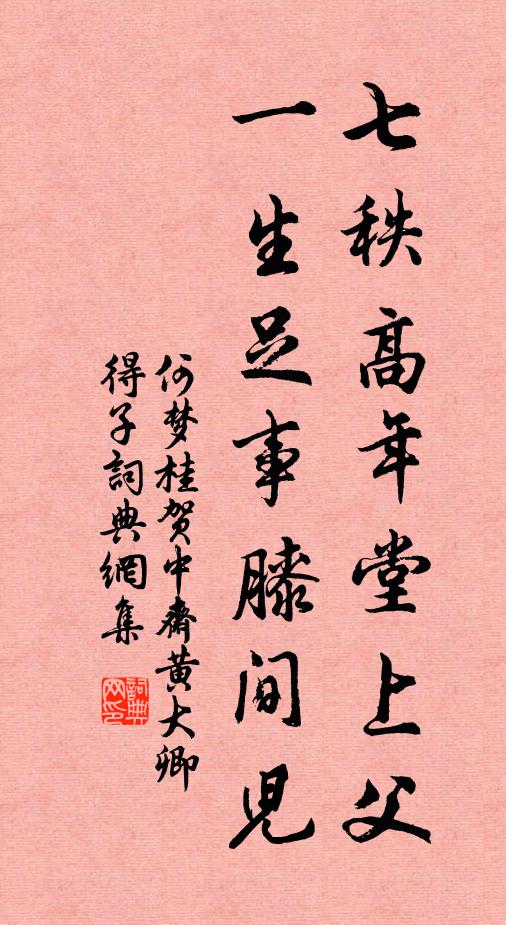 七秩高年堂上父
一生足事膝间児
何梦桂贺中斋黄大卿
得子詞典網集
詞典网印